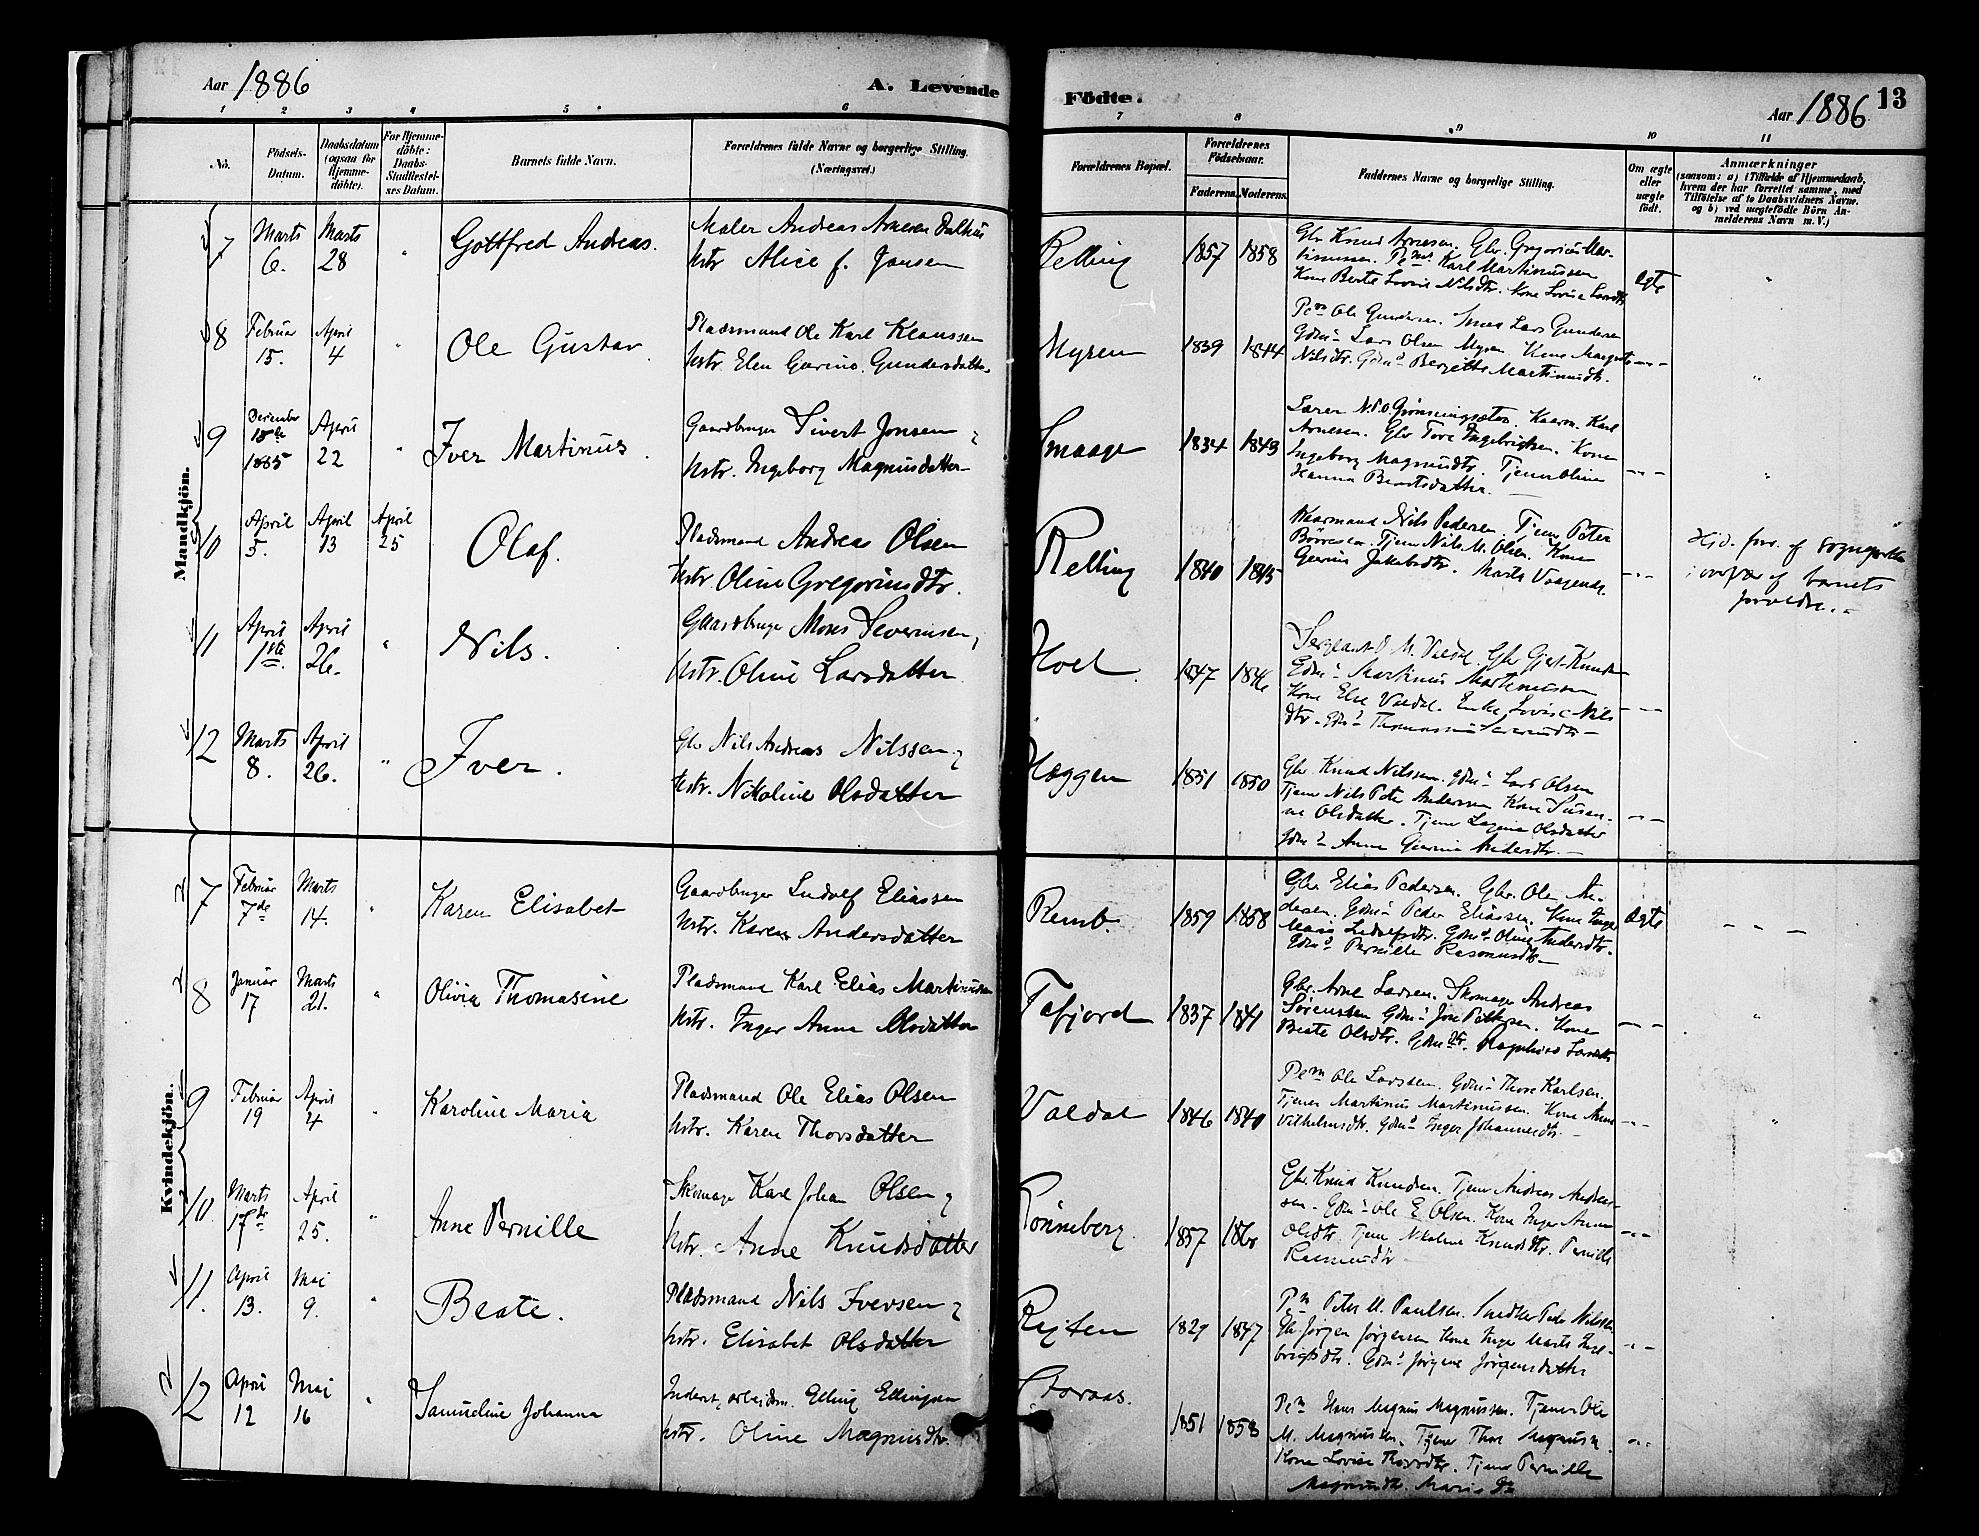 Aar 1886
A. Levende
Födte.
Aar 1886
13
1 2 3 4 5 6 7 8 9 10 11
No.
Födsels-Datum.
Daabsdatum (ogsaa for Hjemme-döbte).
For Hjemme-döbte: Daabs-Stadfæstel-ses Datum.
Barnets fulde Navn.
Forældrenes fulde Navne og borgerlige Stilling. (Næringsvei.)
Forældrenes Bopæl.
Forældrenes Födselsaar.
Faderens. Moderens.
Faddernes Navne og borgerlige Stilling.
Om ægte eller uægte födt.
Anmærkninger
(saasom: a) i Tilfælde af Hjemmedaab, hvem der har forrettet samme, med Tilföielse af to Daabsvidners Navne. og b) ved uægtefödte Börn An-melderens Navn m. V.)
Mandkjön.
7 Marts 6. Marts 28 " Gottfred Andreas.
Maler Andreas Arnesen
Hstr Alice J. Jonsen
Relling 1857 1858
Gbr Knud Arnesen. Gbr. Gregorius Mar-
tinussen. Pm Karl Martinussen
Kone Berte Lovise Nilsdtr. Kone Lovise Larsdtr
Ægte "
8 Februar 15. April 4 " Ole Gustav.
Pladsmand Ole Karl Klaussen
Hstr. Elen Gurine Gundersdatter
Myren 1839 1844
Pm Ole Gundersen. Smed Lars Gundersen
Gdm Lars Olsen Myren. Kone Margrete
Nilsdtr. Gdm Bergitte Martinusdtr.
"
9 December 18de 1885 April 22 " Iver Martinus.
Gaardbruger Sivert Jonsen
Hstr. Ingeborg Magnusdatter
Smaage 1834 1843
Lærer N. P. O. Grønningsæter. Kaarm. Karl
Arnesen. Gbr Tore Ingebrigtsen. Kone
Ingeborg Magnusdtr. Tjener Oline
Hanna Berntsdatter.
"
10 April 5. April 13 April 25 Olaf.
Pladsmand Andreas Olsen
Hstr. Oline Gregoriusdtr.
Relling 1840 1845
Kaarmand Nils Pedersen. Tjener Peter
Børresen. Tjener Nils M. Olsen. Kone
Gurine Jakobsdtr. Marte Vaagenes.
Hjd. forr. af Sognepresten
i overvær af barnets
forældre.
11 April 1ste April 26. " Nils.
Gaardbruger Mons Severinsen
Hstr. Oline Larsdatter
Hoel 1847 1846
Sergeant O. M. Valdal. Gbr Gjert Knudsen
Gdm Martinus Martinussen
Kone Else Valdal. Enke Lovise Nils
dtr. Gdm Thomasine Severinsdtr
12 Marts 8. April 26. " Iver.
Gbr Nils Andreas Nilssen
Hstr. Nikoline Olsdatter
Hæggen 1851 1850
Gbr. Knud Nilssen. Gdm Lars Olsen
Tjener Nils Peter Andersen Kone Susan-
ne Olsdatter. Tjener Olsdatter
Gdm Anne Gurine Andersdtr.
Kvindekjön.
7 Februar 7de Marts 14. " Karen Elisabet
Gaardbruger Ludvolf Eliassen
Hstr. Karen Andersdatter
Remb. 1859 1858
Gbr Elias Pedersen. Gbr. Ole An-
dersen. Gdm Peder Eliassen. Kone Inger
Marie Ludolfsdtr. Gdm Oline Andersdtr.
Gdm Pernille Rasmusdtr
Ægte
8 Januar 17 Marts 21. " Olivia Thomasine
Pladsmand Karl Elias Martinussen
Hstr. Inger Anna Olsdatter
Tafjord 1837 1841
Gbr. Arne Larsen. Skomager Andreas
Sørensen Gdm Jon Pettersen. Kone
Beate Olsdtr. Gdm Ragnhild Larsdtr
"
9 Februar 19 April 4 " Karoline Maria
Pladsmand Ole Elias Olsen
Hstr. Karen Thorsdatter
Valdal 1846 1840
Pm Ole Larssen. Gdm Thore Karlsen.
Tjener Martinus Martinussen. Kone Anne
Vilhelmsdtr. Gdm Inger Johannesdtr.
"
10 Marts 17de April 25. " Anne Pernille
Skomager Karl Johan Olsen
Hstr. Anne Knudsdatter
Rønneberg. 1857
Gbr. Knud Knudsen. Tjener Andreas Ander-
sen. Gdm Ole E. Olsen. Kone Inger Anne
Olsdtr. Tjener Nikoline Knudsdtr. Pernille
Rasmusdtr
11. April 13. Mai 9. " Beate.
Pladsmand Nils Iversen
Hstr. Elisabet Olsdatter
Rejten 1829 1847
Pm Peter M. Paulsen. Snedker Peder Nilssen
Gbr Jørgen Jørgensen Kone Inger Marte Inge-
brigtsdtr. Gdm Jørgine Jørgensdatter
12 April 12 Mai 16 " Samueline Johanna
Inderst, arbeidsm. Elling Ellingsen
Hstr. Oline Magnusdtr.
Storaas. 1851 1858
Pm Hans Magnus Magnussen. Tjener Ole
M. Magnussen. Tjener Thore Magnussen.
Kone Lovise Thorsdtr. Tjener Pernille
Magnusdtr. Marie Do